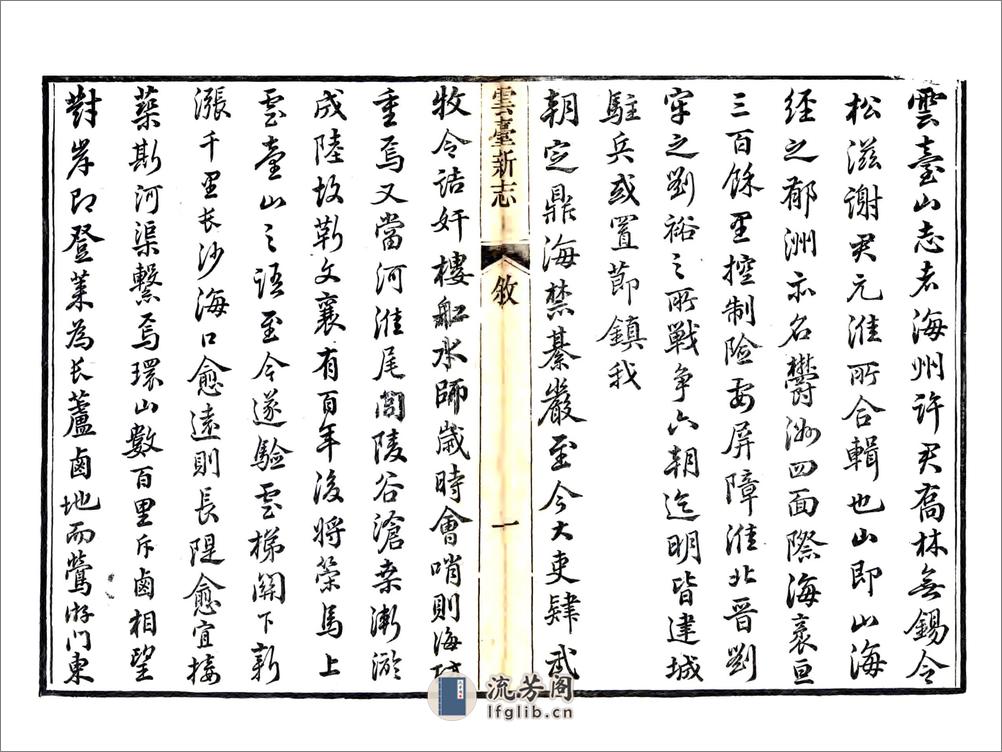 雲臺山志者海州許君喬林無錫令
松滋謝君元淮所合輯也山即山海
經之郁洲亦名欝洲四面際海袤亘
三百餘里控制險要屏障淮北晉劉
牢之劉裕之所戰爭六朝迄明皆建城
駐兵或置節鎮我
朝定鼎海禁綦嚴至今大吏肄武
雲臺新志
敘
一
牧令詰奸樓船水師歲時會哨則海防
重焉又當河淮尾閭陵谷滄桑漸淤
成陸故靳文襄有百年後將策馬上
雲臺山之語至今遂驗雲梯關下新
漲千里長沙海口愈遠則長隄愈宜接
築斯河渠繫焉環山數百里斥鹵相望
對岸即登萊為長蘆鹵地而鶯游門東
流芳阁
lfglib.cn